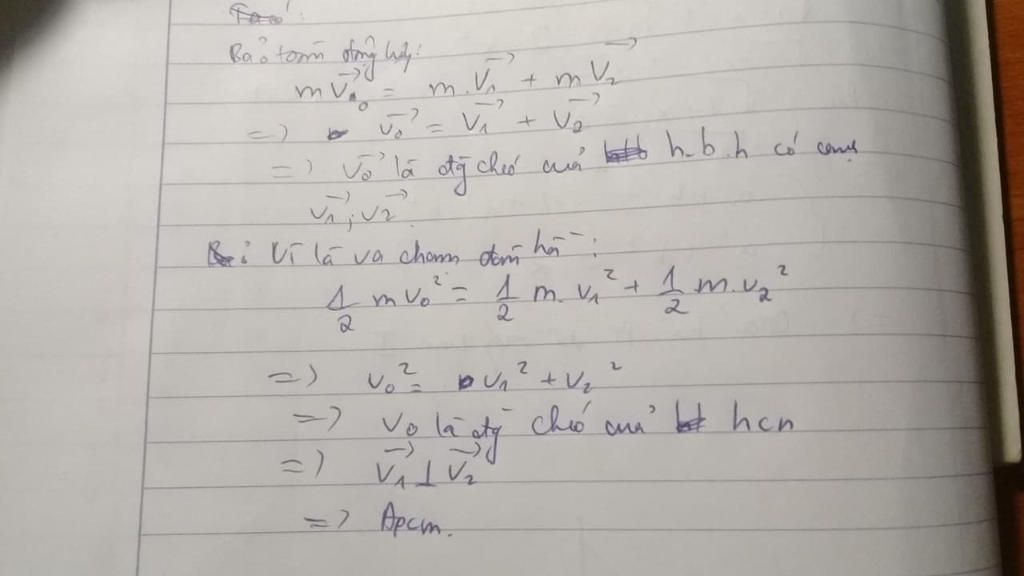 Bảo toàn động lg:
m v₀⃗ = m. v₁⃗ + m v₂⃗
=> v₀⃗ = v₁⃗ + v₂⃗
=> v₀⃗ là đg chéo của h.b.h có cạnh
v₁⃗ ; v₂⃗
: Vì là va chạm đàn hồi :
1/2 m v₀² = 1/2 m. v₁² + 1/2 m. v₂²
=> v₀² = v₁² + v₂²
=> v₀ là đg chéo của hcn
=> v₁⃗ ⊥ v₂⃗
=> Đpcm.